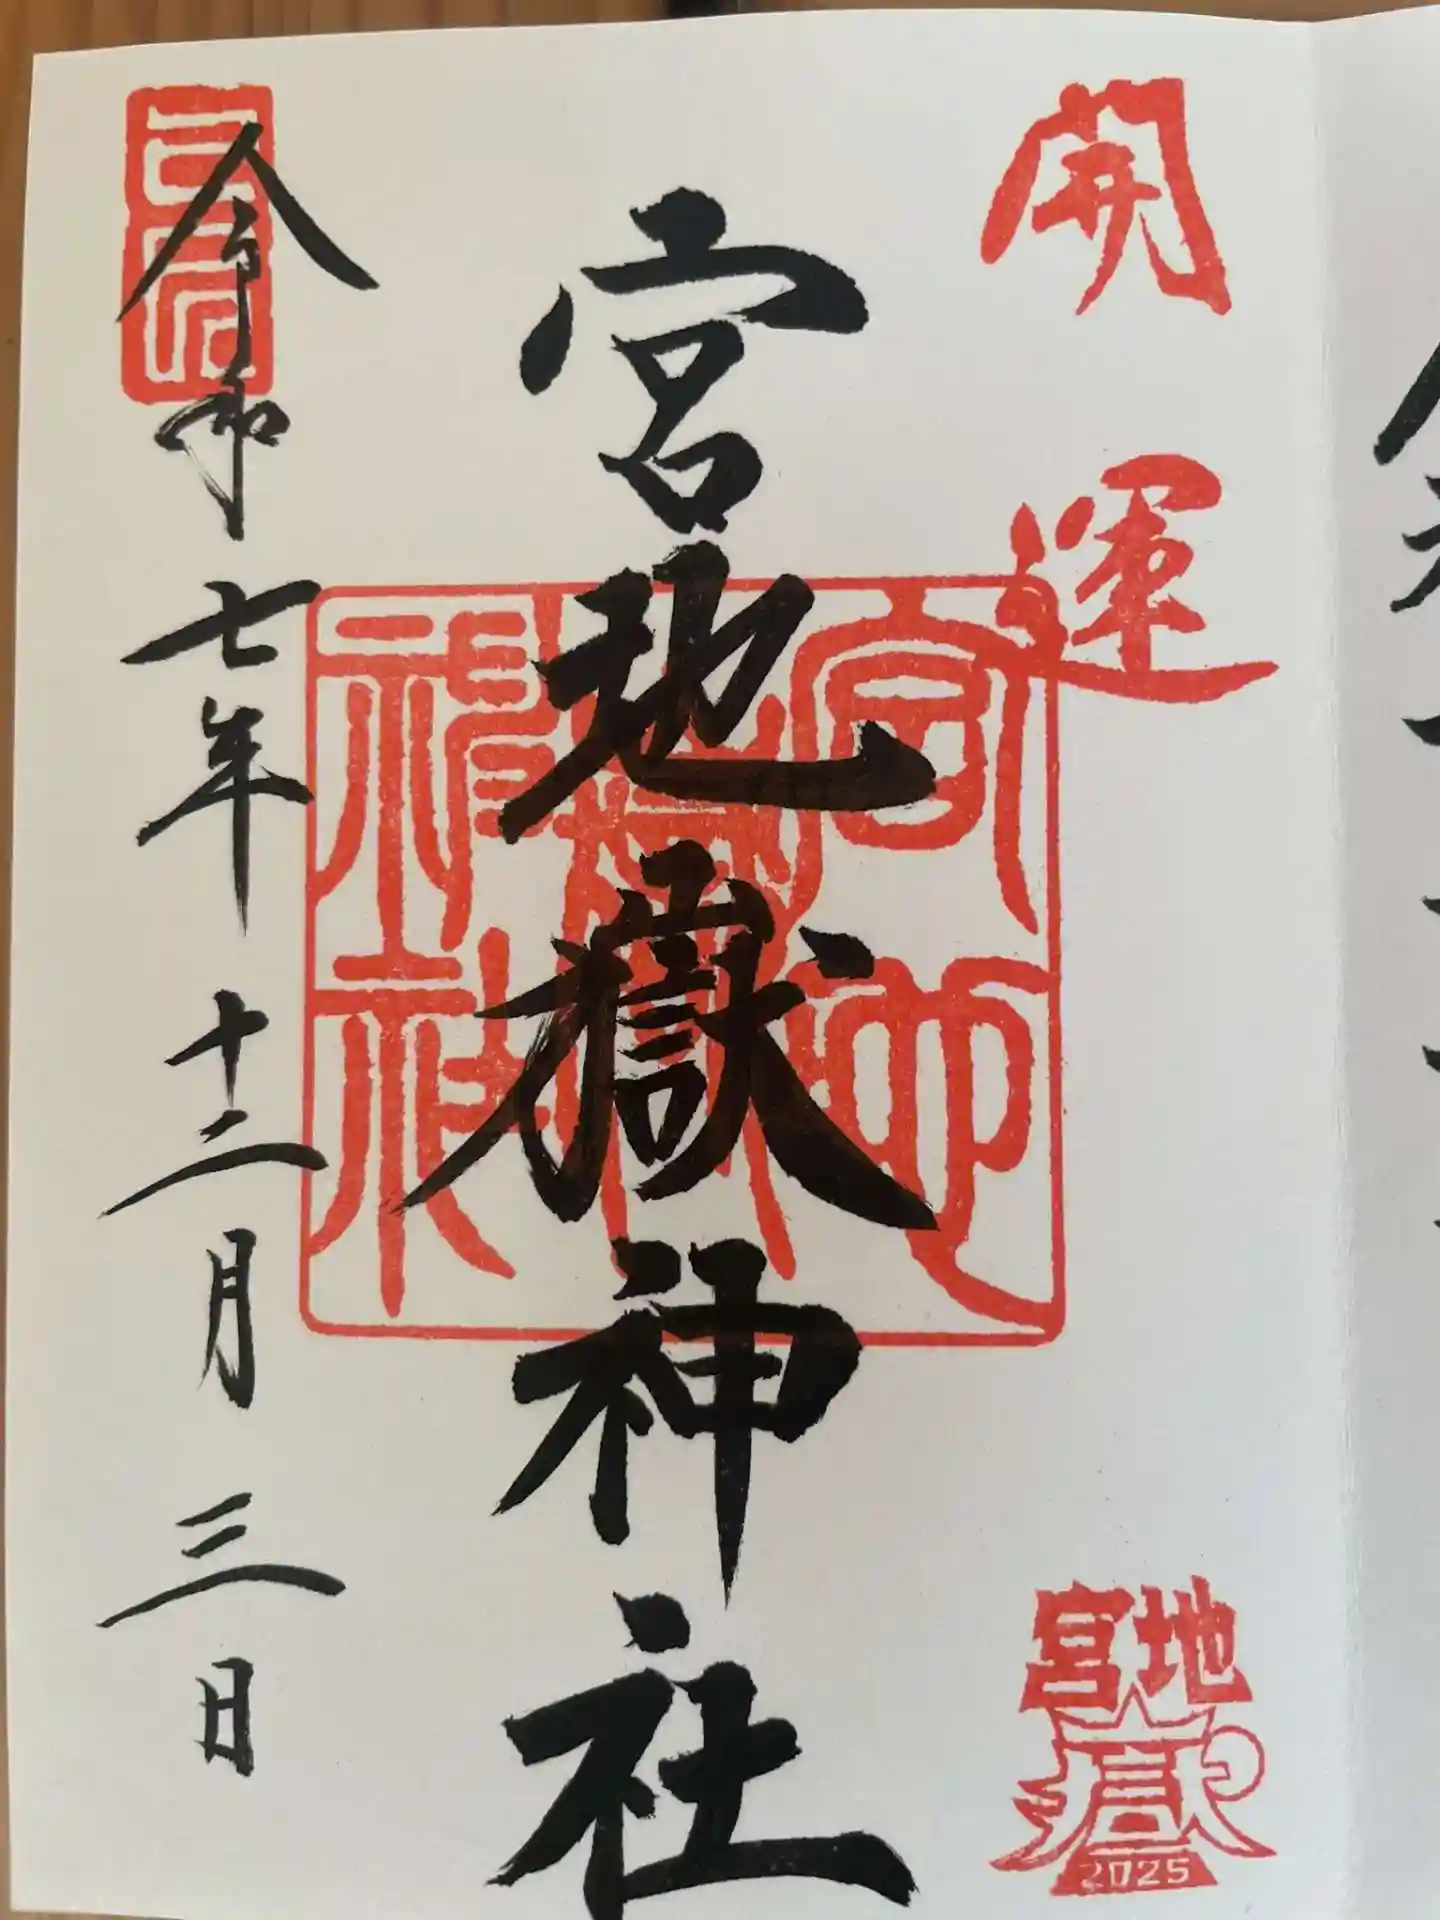 開運
宮地嶽
2025
宮地嶽神社
令和七年十二月三日